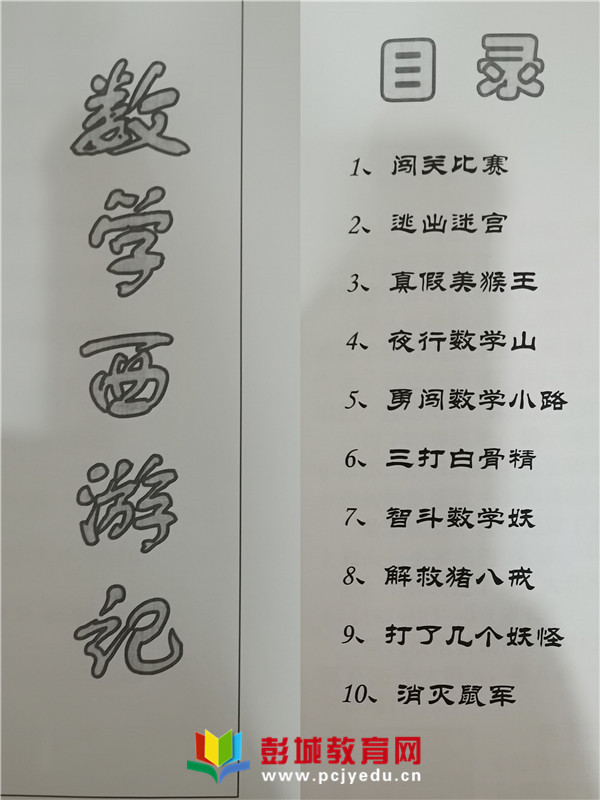 数学西游记
目录
1、闯关比赛
2、逃出迷宫
3、真假美猴王
4、夜行数学山
5、勇闯数学小路
6、三打白骨精
7、智斗数学妖
8、解救猪八戒
9、打了几个妖怪
10、消灭鼠军
彭城教育网
www.pcjyedu.cn